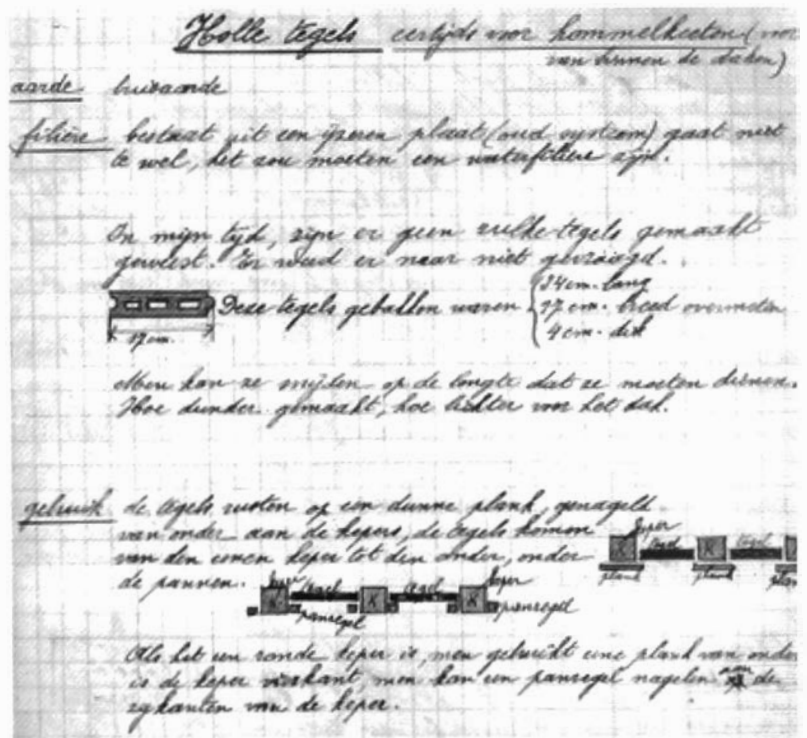 Holle tegels eertijds voor hommelkeeten (voor
van binnen de daken)
aarde buisaarde
filière bestaat uit een ijzeren plaat (oud systeem) gaat niet
te wel, het zou moeten een waterfiliere zijn.
In mijn tijd, zijn er geen zulke tegels gemaakt
geweest. Er werd er naar niet gevraagd.
17 cm.
Deze tegels gebakken waren
34 cm. lang
17 cm. breed overmeten
4 cm. dik
Men kan ze snijden op de longte dat ze moeten dienen.
Hoe dunder gemaakt, hoe lichter voor het dak.
gebruik de tegels rusten op een dunne plank, genageld
van onder aan de kepers, de tegels komen
van den eenen keper tot den ander, onder
de pannen.
keper
tegel tegel
K K K
plank plank plank
keper tegel tegel keper
K K K
panregel panregel
Als het een ronde keper is, men gebruikt eene plank van onder
is de keper vierkant, men kan een panregel nagelen aan de
zijkanten van de keper.